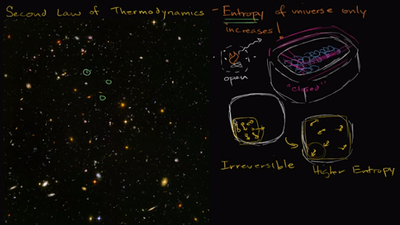 Second Law of Thermodynamics - Entropy of universe only
increases!
open
"closed"
Irreversible
Higher Entropy